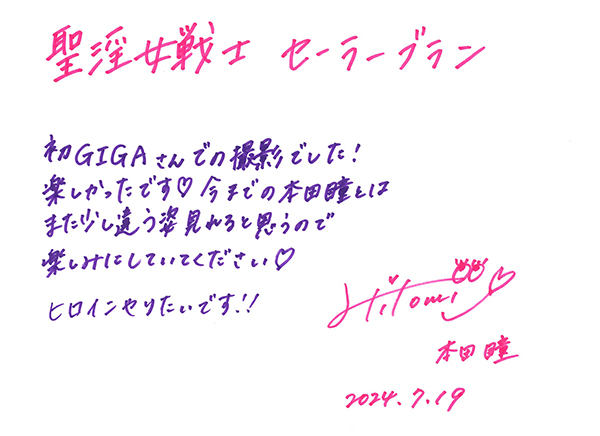 聖淫女戦士 セーラーブラン
初GIGAさんでの撮影でした！
楽しかったです♡今までの本田瞳とは
また少し違う姿見れると思うので
楽しみにしていてください♡
ヒロインやりたいです!!
Hitomi
本田瞳
2024.7.19